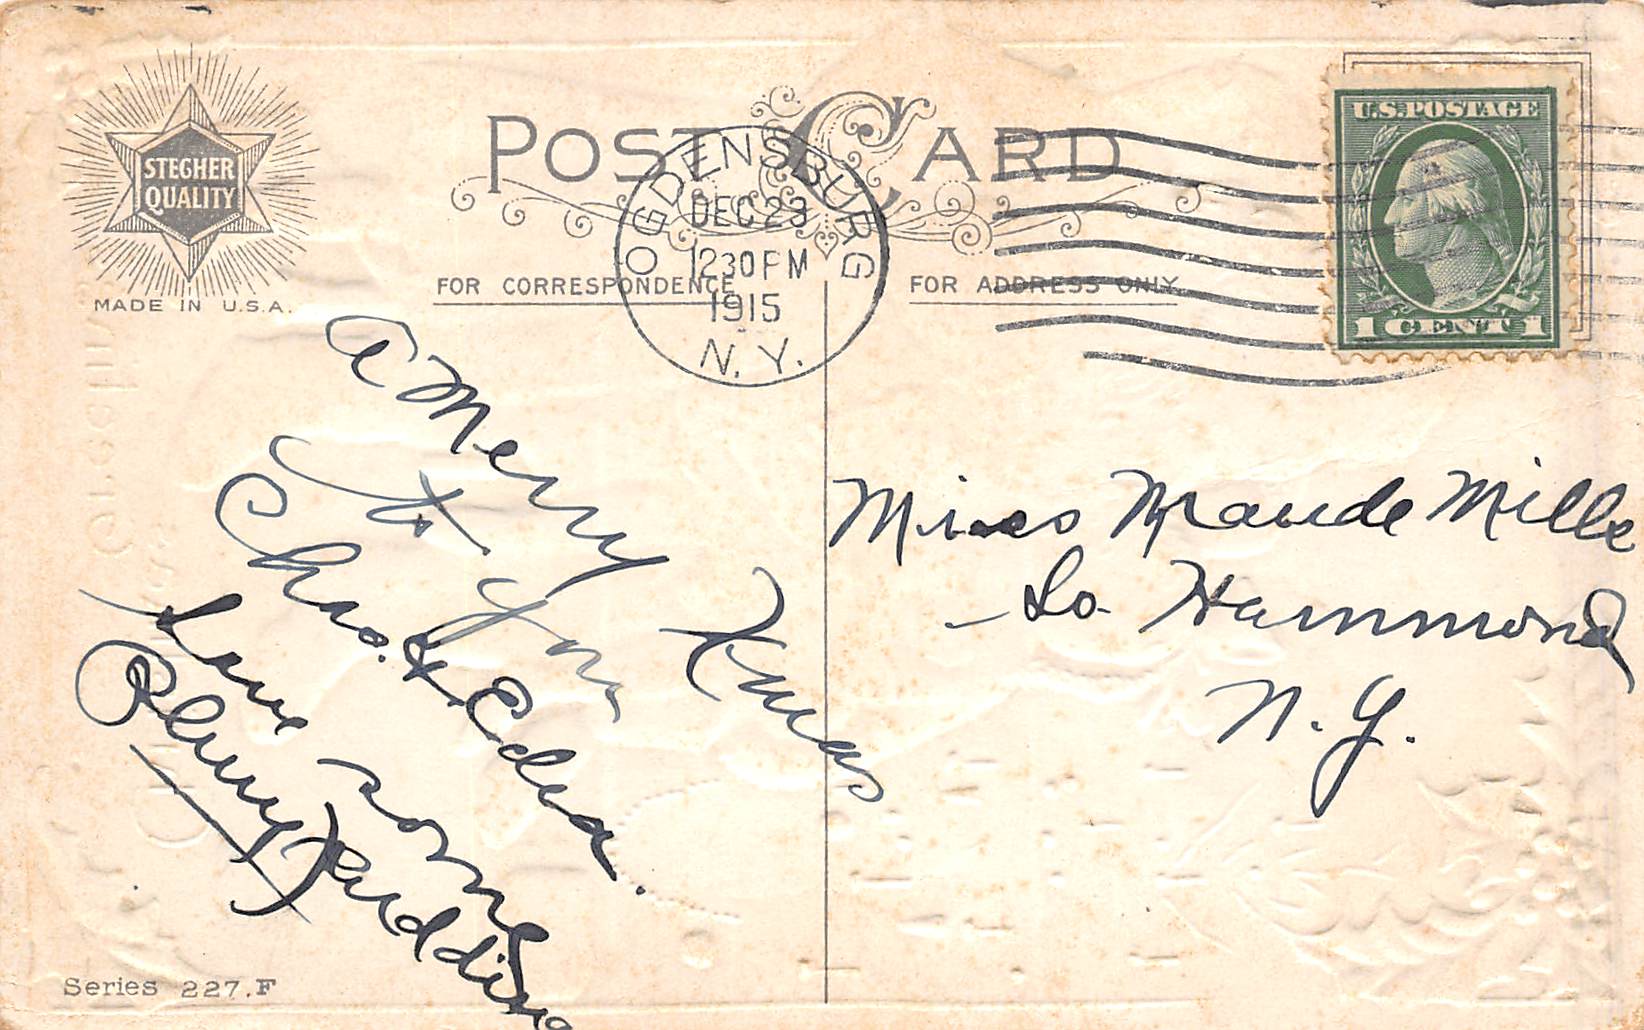 STEGHER
QUALITY
MADE IN U.S.A.
POST CARD
OGDENSBURG
DEC 23
1230 PM
1915
N. Y.
U.S. POSTAGE
1 CENT 1
FOR CORRESPONDENCE
FOR ADDRESS ONLY.
A Merry Xmas
to you
Chas. & Edna.
Save some
Plum Pudding
Miss Maude Mills
So Hammond
N. Y.
Series 227.F